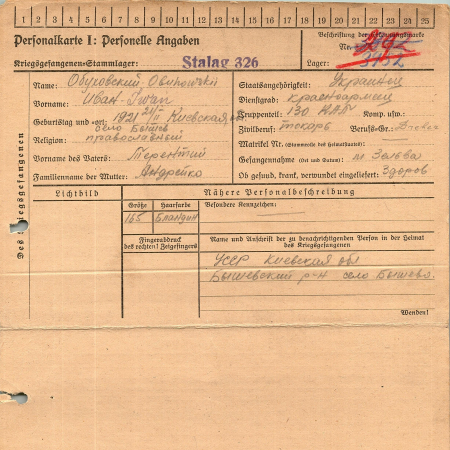 1 2 3 4 5 6 7 8 9 10 11 12 13 14 15 16 17 18 19 20 21 22 23 24 25
Personalkarte I: Personelle Angaben
Kriegsgefangenen-Stammlager: Stalag 326
Beschriftung der Erkennungsmarke
Nr.
Lager:
Des Kriegsgefangenen
Name: Обуховский
Vorname: Иван Iwan
Geburtstag und -ort: 1921 Киевская
село Бышев
Religion: православный
Vorname des Vaters: Терентий
Familienname der Mutter: Андрейко
Staatsangehörigkeit: Украинец
Dienstgrad: красноармеец
Truppenteil: 130 ААП Komp. usw.:
Zivilberuf: токарь Berufs-Gr.:
Matrikel Nr. (Stammrolle des Heimatstaates)
Gefangennahme (Ort und Datum): м Зельва
Ob gesund, krank, verwundet eingeliefert: Здоров
Lichtbild
Nähere Personalbeschreibung
Größe Haarfarbe Besondere Kennzeichen:
165 Бландин
Fingerabdruck
des rechten! Zeigefingers
Name und Anschrift der zu benachrichtigenden Person in der Heimat
des Kriegsgefangenen
УССР Киевская обл
Бышевский р-н село Бышев
Wenden!